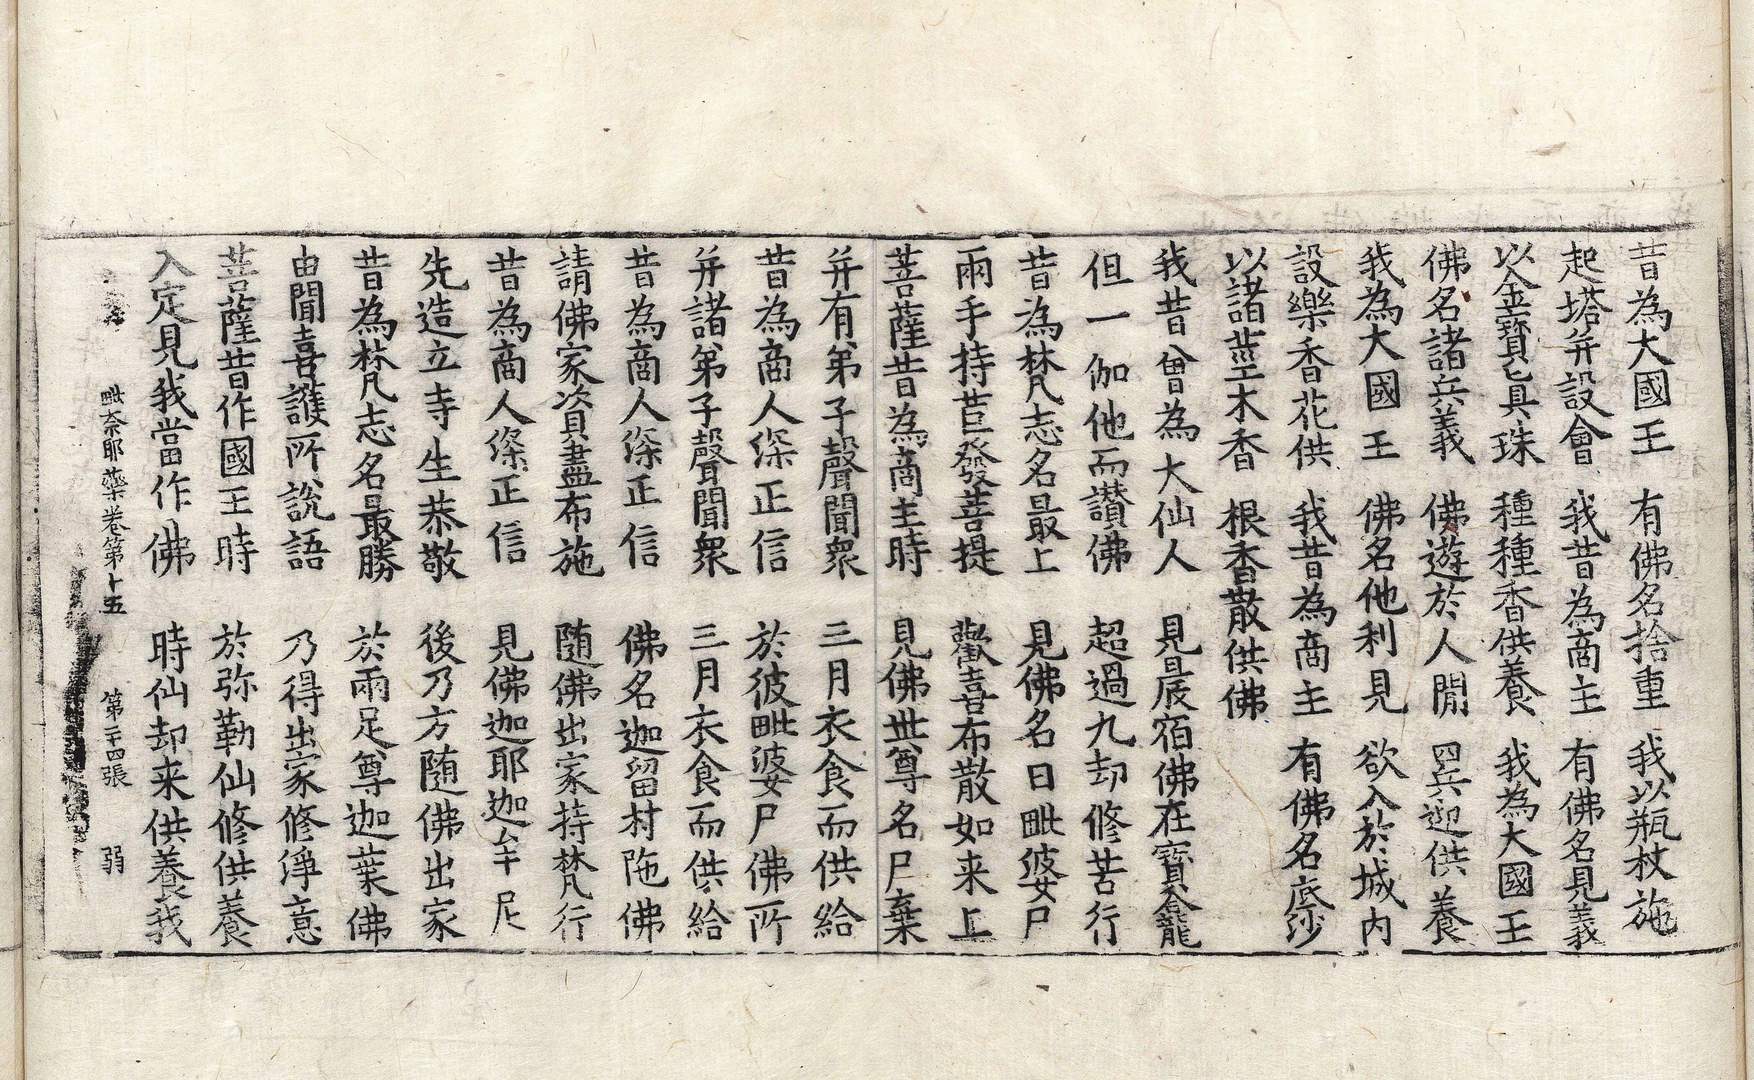 昔為大國王　有佛名捨重　我以瓶杖施
起塔并設會　我昔為商主　有佛名見義
以金寶真珠　種種香供養　我為大國王
佛名諸兵義　佛遊於人閒　四兵迎供養
我為大國王　佛名他利見　欲入於城內
設樂香花供　我昔為商主　有佛名底沙
以諸莖木香　根香散供佛
我昔曾為大仙人　見晸宿佛在寶龕
但一伽他而讚佛　超過九劫修苦行
昔為梵志名最上　見佛名曰毗婆尸
兩手持苣發菩提　歡喜布散如来上
菩薩昔為商主時　見佛世尊名尸棄
并有弟子聲聞衆　三月衣食而供給
昔為商人深正信　於彼毗婆尸佛所
并諸弟子聲聞衆　三月衣食而供給
昔為商人深正信　佛名迦留村陁佛
請佛家資盡布施　随佛出家持梵行
昔為商人深正信　見佛迦耶迦牟尼
先造立寺生恭敬　後乃方随佛出家
昔為梵志名最勝　於兩足尊迦葉佛
由聞喜護所說語　乃得出家修淨意
菩薩昔作國王時　於弥勒仙修供養
入定見我當作佛　時仙却来供養我
毗奈耶藥卷第十五　第二十四張　弱